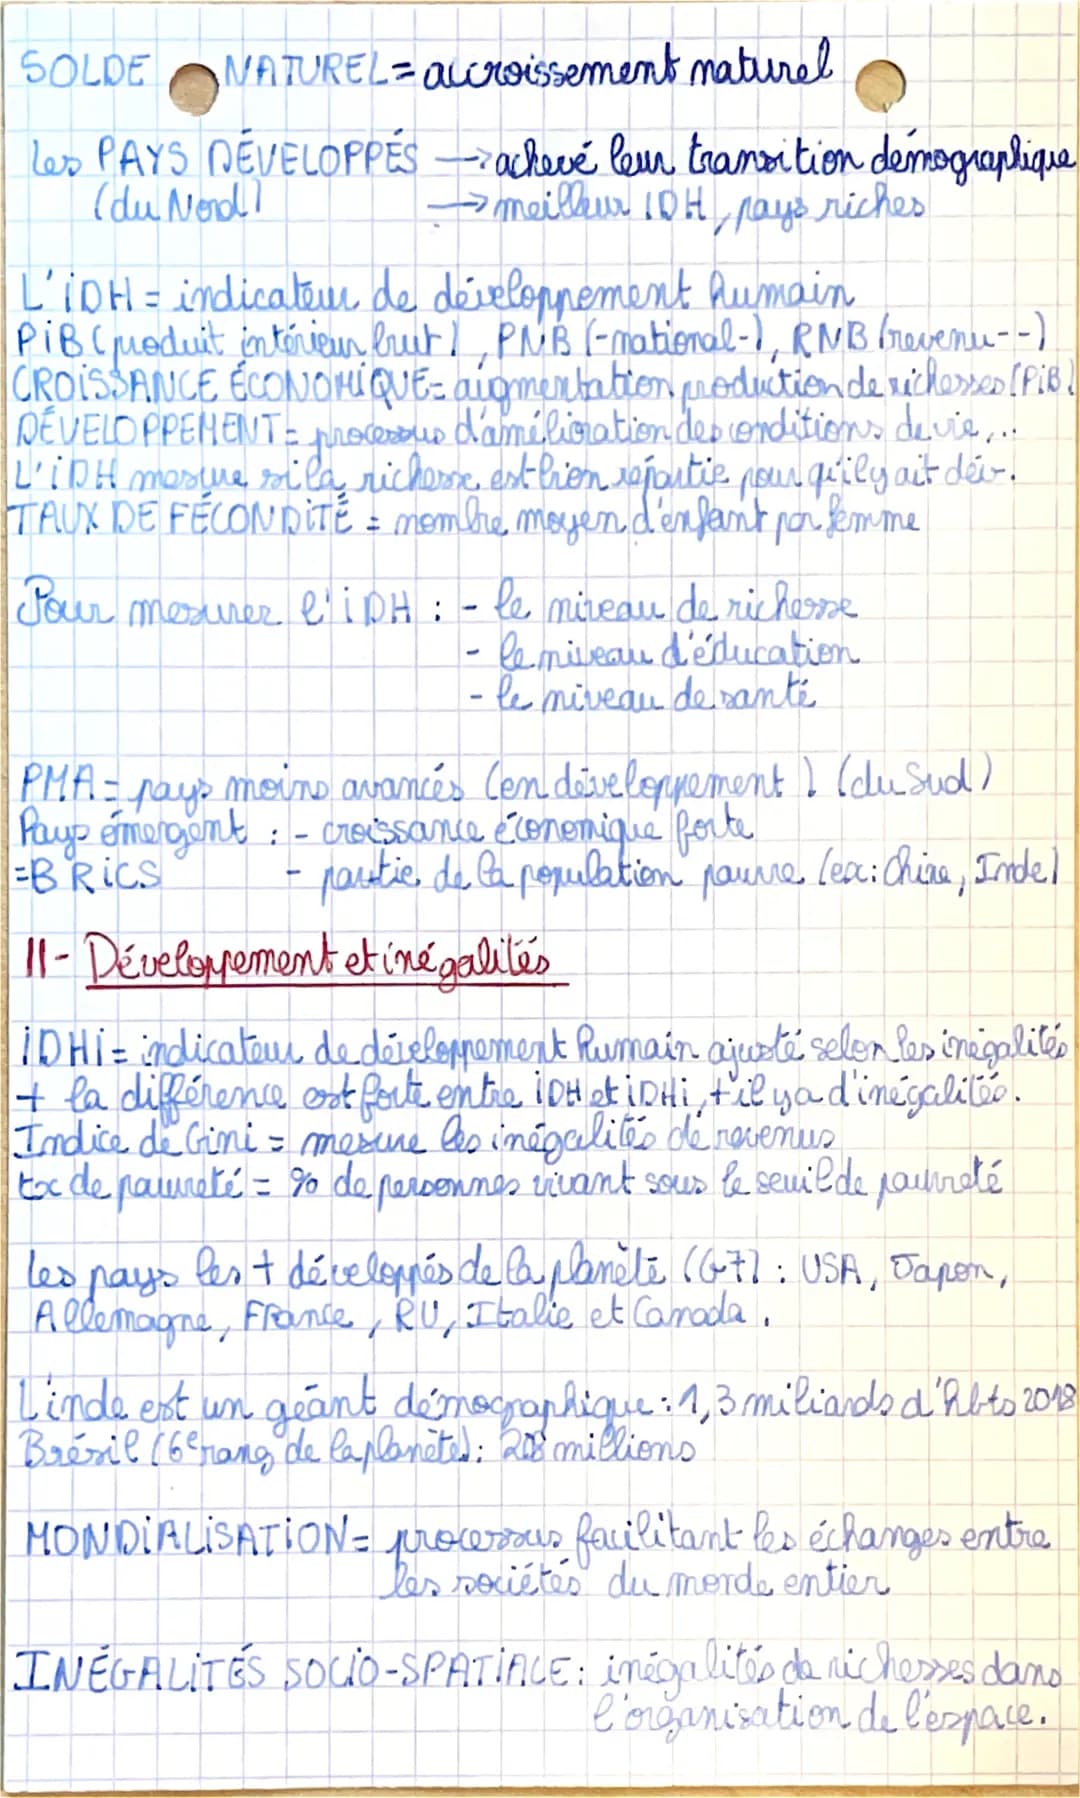 SOLDE NATUREL = accroissement naturel
Les PAYS DÉVELOPPÉS → achevé leur transition démographique
(du Nord) → meilleur IDH, pays riches
L'IDH = indicateur de développement humain
PIB (produit intérieur brut), PNB (-national-), RNB (revenu--)
CROISSANCE ÉCONOMIQUE = augmentation production de richesses (PIB)
DÉVELOPPEMENT = processus d'amélioration des conditions de vie,...
L'IDH mesure si la richesse est bien répartie pour qu'il y ait dév.
TAUX DE FÉCONDITÉ = nombre moyen d'enfant par femme
Pour mesurer l'IDH : - le niveau de richesse
- le niveau d'éducation
- le niveau de santé
PMA = pays moins avancés (en développement) (du Sud)
Pays émergent : - croissance économique forte
= BRICS - partie de la population pauvre (ex: Chine, Inde)
II- Développement et inégalités
IDHI = indicateur de développement humain ajusté selon les inégalités
+ la différence est forte entre IDH et IDHI, + il y a d'inégalités.
Indice de Gini = mesure les inégalités de revenus
tx de pauvreté = % de personnes vivant sous le seuil de pauvreté
Les pays les + développés de la planète (G7) : USA, Japon,
Allemagne, France, RU, Italie et Canada.
L'inde est un géant démographique : 1,3 miliards d'hbts 2018
Brésil (6e rang de la planète) : 208 millions
MONDIALISATION = processus facilitant les échanges entre
les sociétés du monde entier
INÉGALITÉS SOCIO-SPATIALE : inégalités de richesses dans
l'organisation de l'espace.